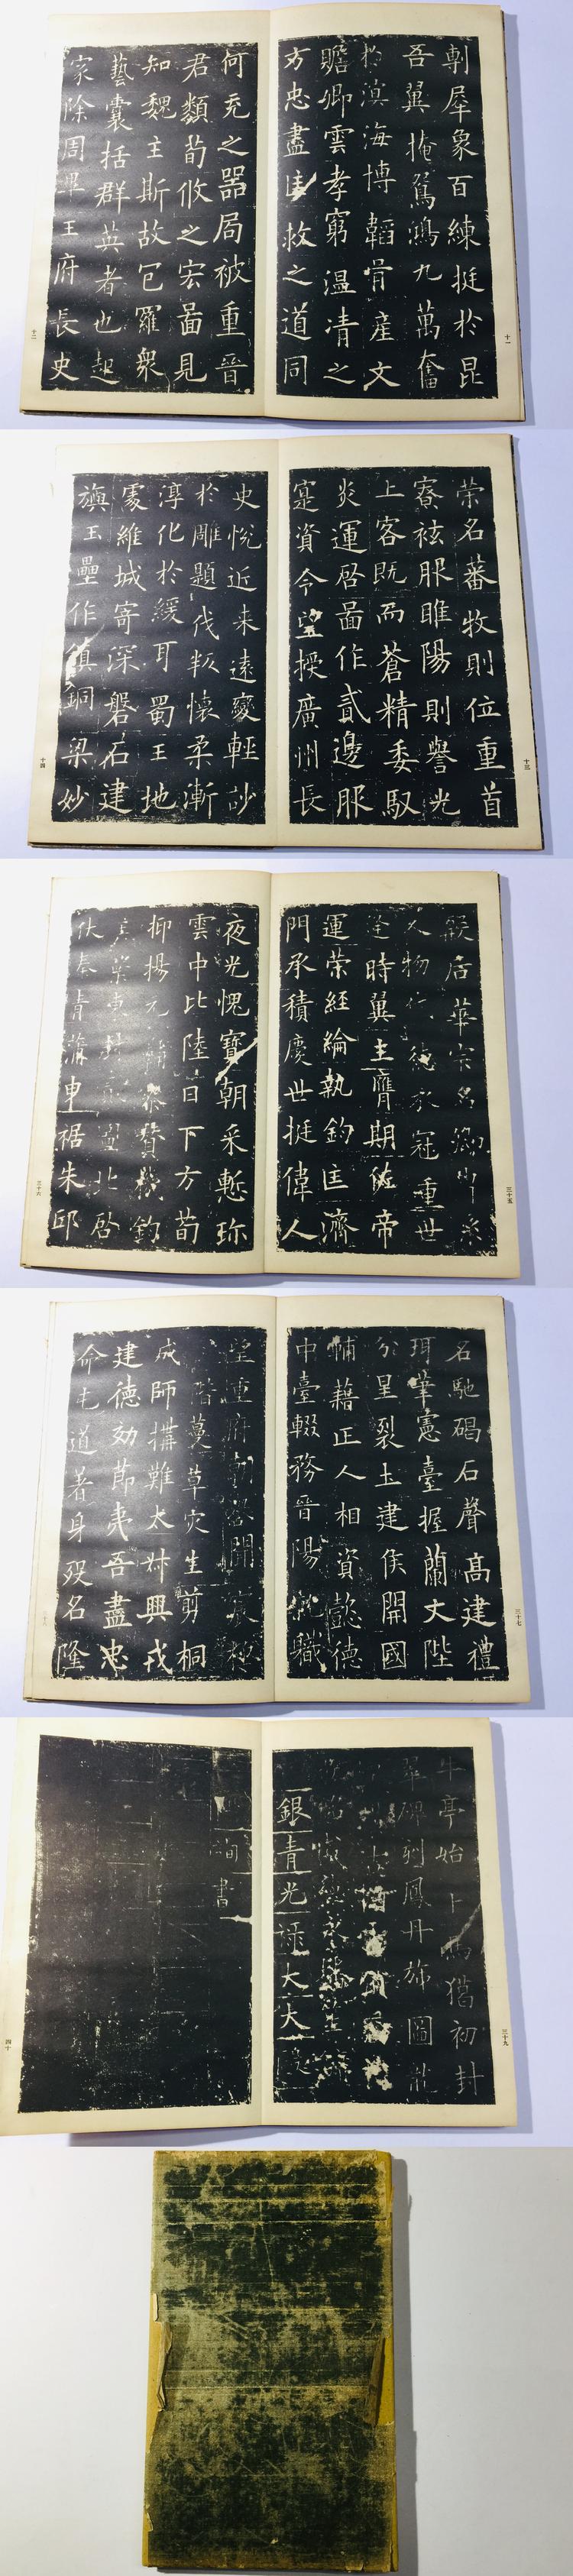 剸犀象百練挺於昆
吾翼掩鴛鴻九萬奮
於溟海博韜骨產文
贍卿雲孝窮溫凊之
方忠盡匡救之道同
十一
何充之器局被重晉
君類荀攸之宏啚見
知魏主斯故包羅眾
藝囊括群英者也起
家除周畢王府長史
十二
榮名蕃牧則位重首
寮袨服睢陽則譽光
上客既而蒼精委馭
炎運啓啚作貳邊服
寔資令望授廣州長
十三
史悅近來遠變輕訬
於雕題伐叛懷柔漸
淳化於緩耳蜀王地
處維城寄深磐石建
旟玉壘作鎮銅梁妙
十四
殷后華宗名卿胄系
人物代德衣冠重世
逢時翼主膺期佐帝
運策經綸執鈞匡濟
門承積慶世挺偉人
三十五
夜光愧寶朝采慙珍
雲中比陸日下方荀
抑揚元輔參贊機鈞
北啓
伏奏青蒲曳裾朱邸
三十六
名馳碣石聲高建禮
珥筆憲臺握蘭文陛
分星裂土建侯開國
輔藉正人相資懿德
中臺輟務晉陽就職
三十七
望重府朝譽聞宸極
階蔓草災生剪桐
成師搆難太叔興戎
建德効節夷吾盡忠
命屯道著身歿名隆
三十八
牛亭始卜馬獵初封
翠碑刻鳳丹旐圖龍
銀青光祿大夫
三十九
詢書
四十